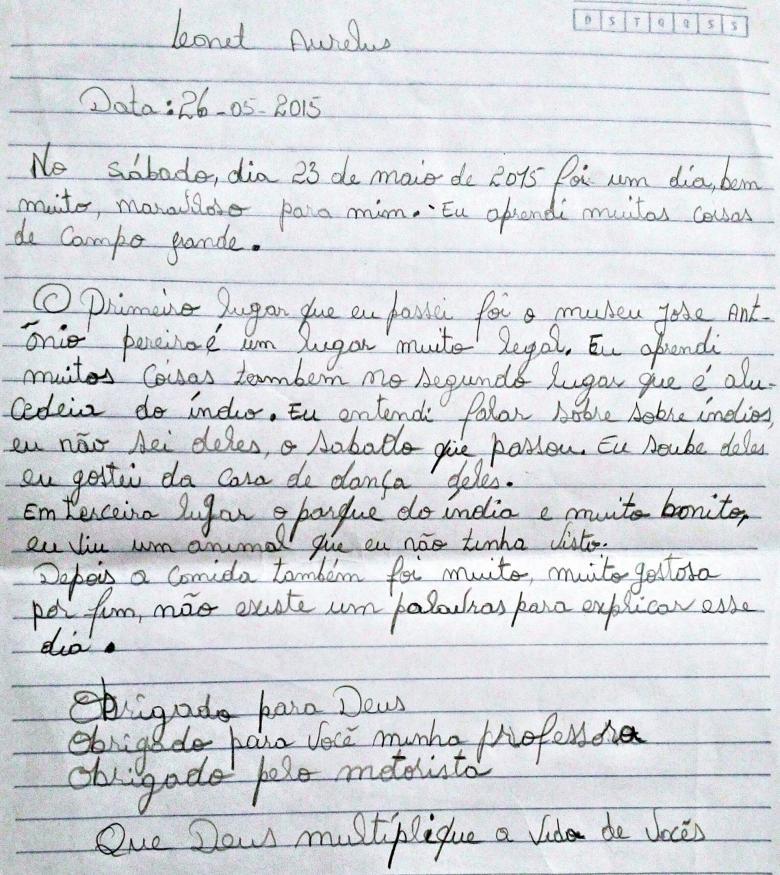 D S T Q Q S S
Leonet Aurelus
Data: 26-05-2015
No sábado, dia 23 de maio de 2015 foi um dia, bem
muito, maravilloso para mim. Eu aprendi muitas coisas
de Campo grande.
O Primeiro lugar que eu passei foi o museu Jose Ant-
ônio pereira é um lugar muito legal. Eu aprendi
muitos coisas tambem no segundo lugar que é alu-
cedeia do índio. Eu entendi falar sobre sobre índios,
eu não sei deles, o sabado que passou. Eu soube deles
eu gostei da casa de dança deles.
Em terceira lugar o parque do índia e muito bonito,
eu viu um animal que eu não tinha visto.
Depois a comida também foi muito, muito gostosa
por fim, não existe um palavras para explicar esse
dia.
Obrigado para Deus
Obrigado para você minha professora
Obrigado pelo motorista
Que Deus multíplique a vida de vocês